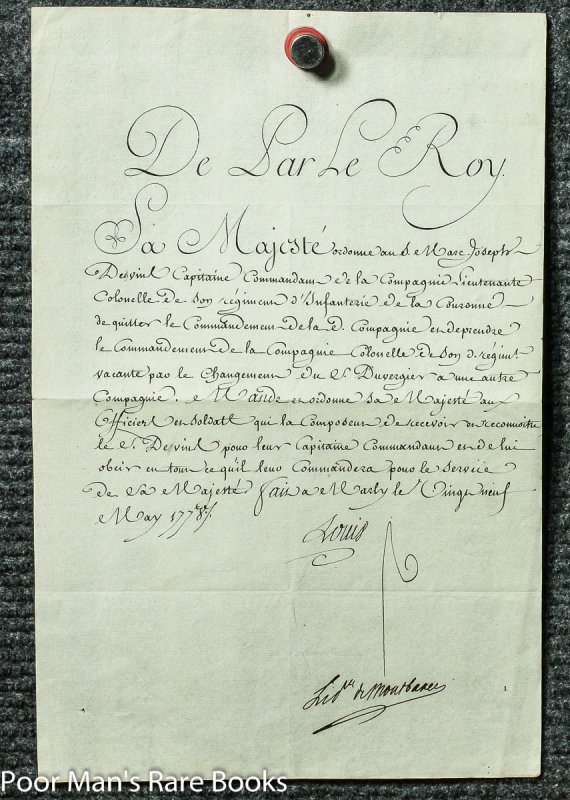 De Par Le Roy.
Sa Majesté ordonne au S. Marc Joseph
Desvint Capitaine Commandant de la Compagnie Lieutenante
Colonelle de son régiment d'Infanterie de la Couronne
de quitter le Commandement de la d. Compagnie et deprendre
le Commandement de la Compagnie Colonelle de son d. régimt
vacante par le Changement du Sr. Duvergier a une autre
Compagnie. Mande et ordonne sa Majesté aux
Officiers et soldats qui la Composent de recevoir et reconnoitre
le Sr. Desvint pour leur Capitaine Commandant et de lui
obeir en tout ce qu'il leur Commandera pour le service
de Sa Majesté. Fait a Marly le Vingt neuf
May 1778.
Louis
Le Pce. de Montbarey
1
Poor Man's Rare Books